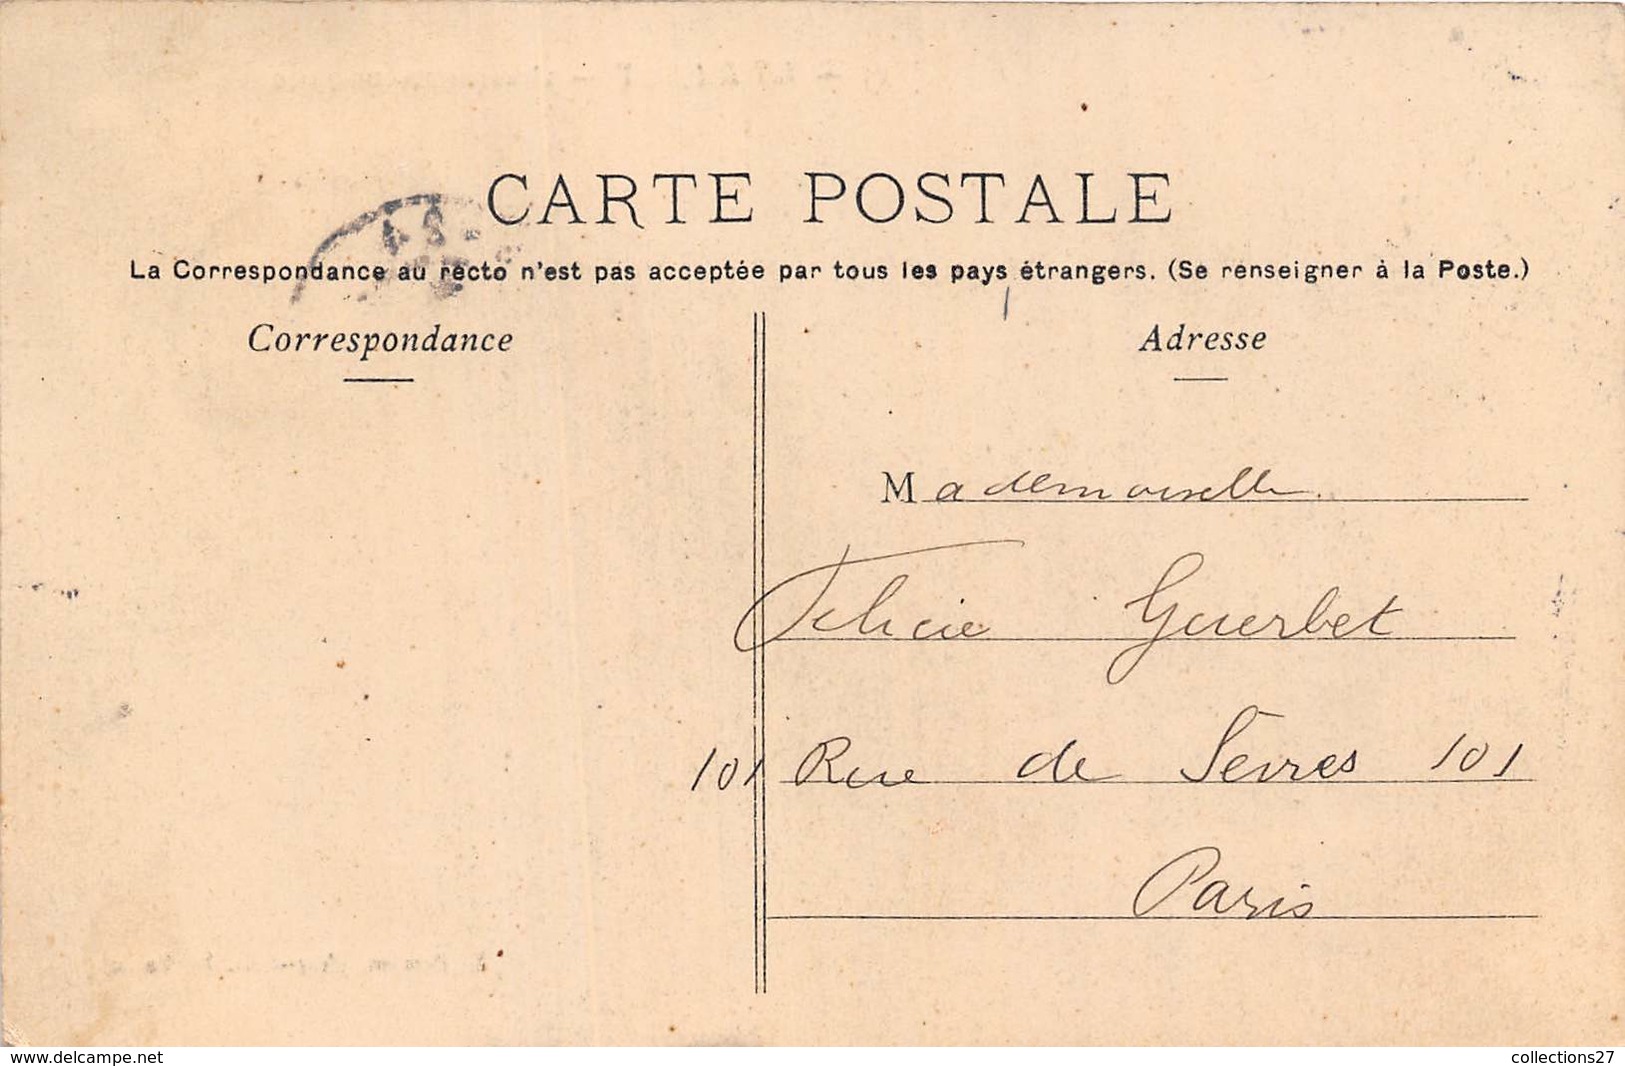 CARTE POSTALE
La Correspondance au recto n'est pas acceptée par tous les pays étrangers. (Se renseigner à la Poste.)
Correspondance
Adresse
Mademoiselle
Felicie Guerbet
101 Rue de Sèvres 101
Paris
www.delcampe.net
collections27